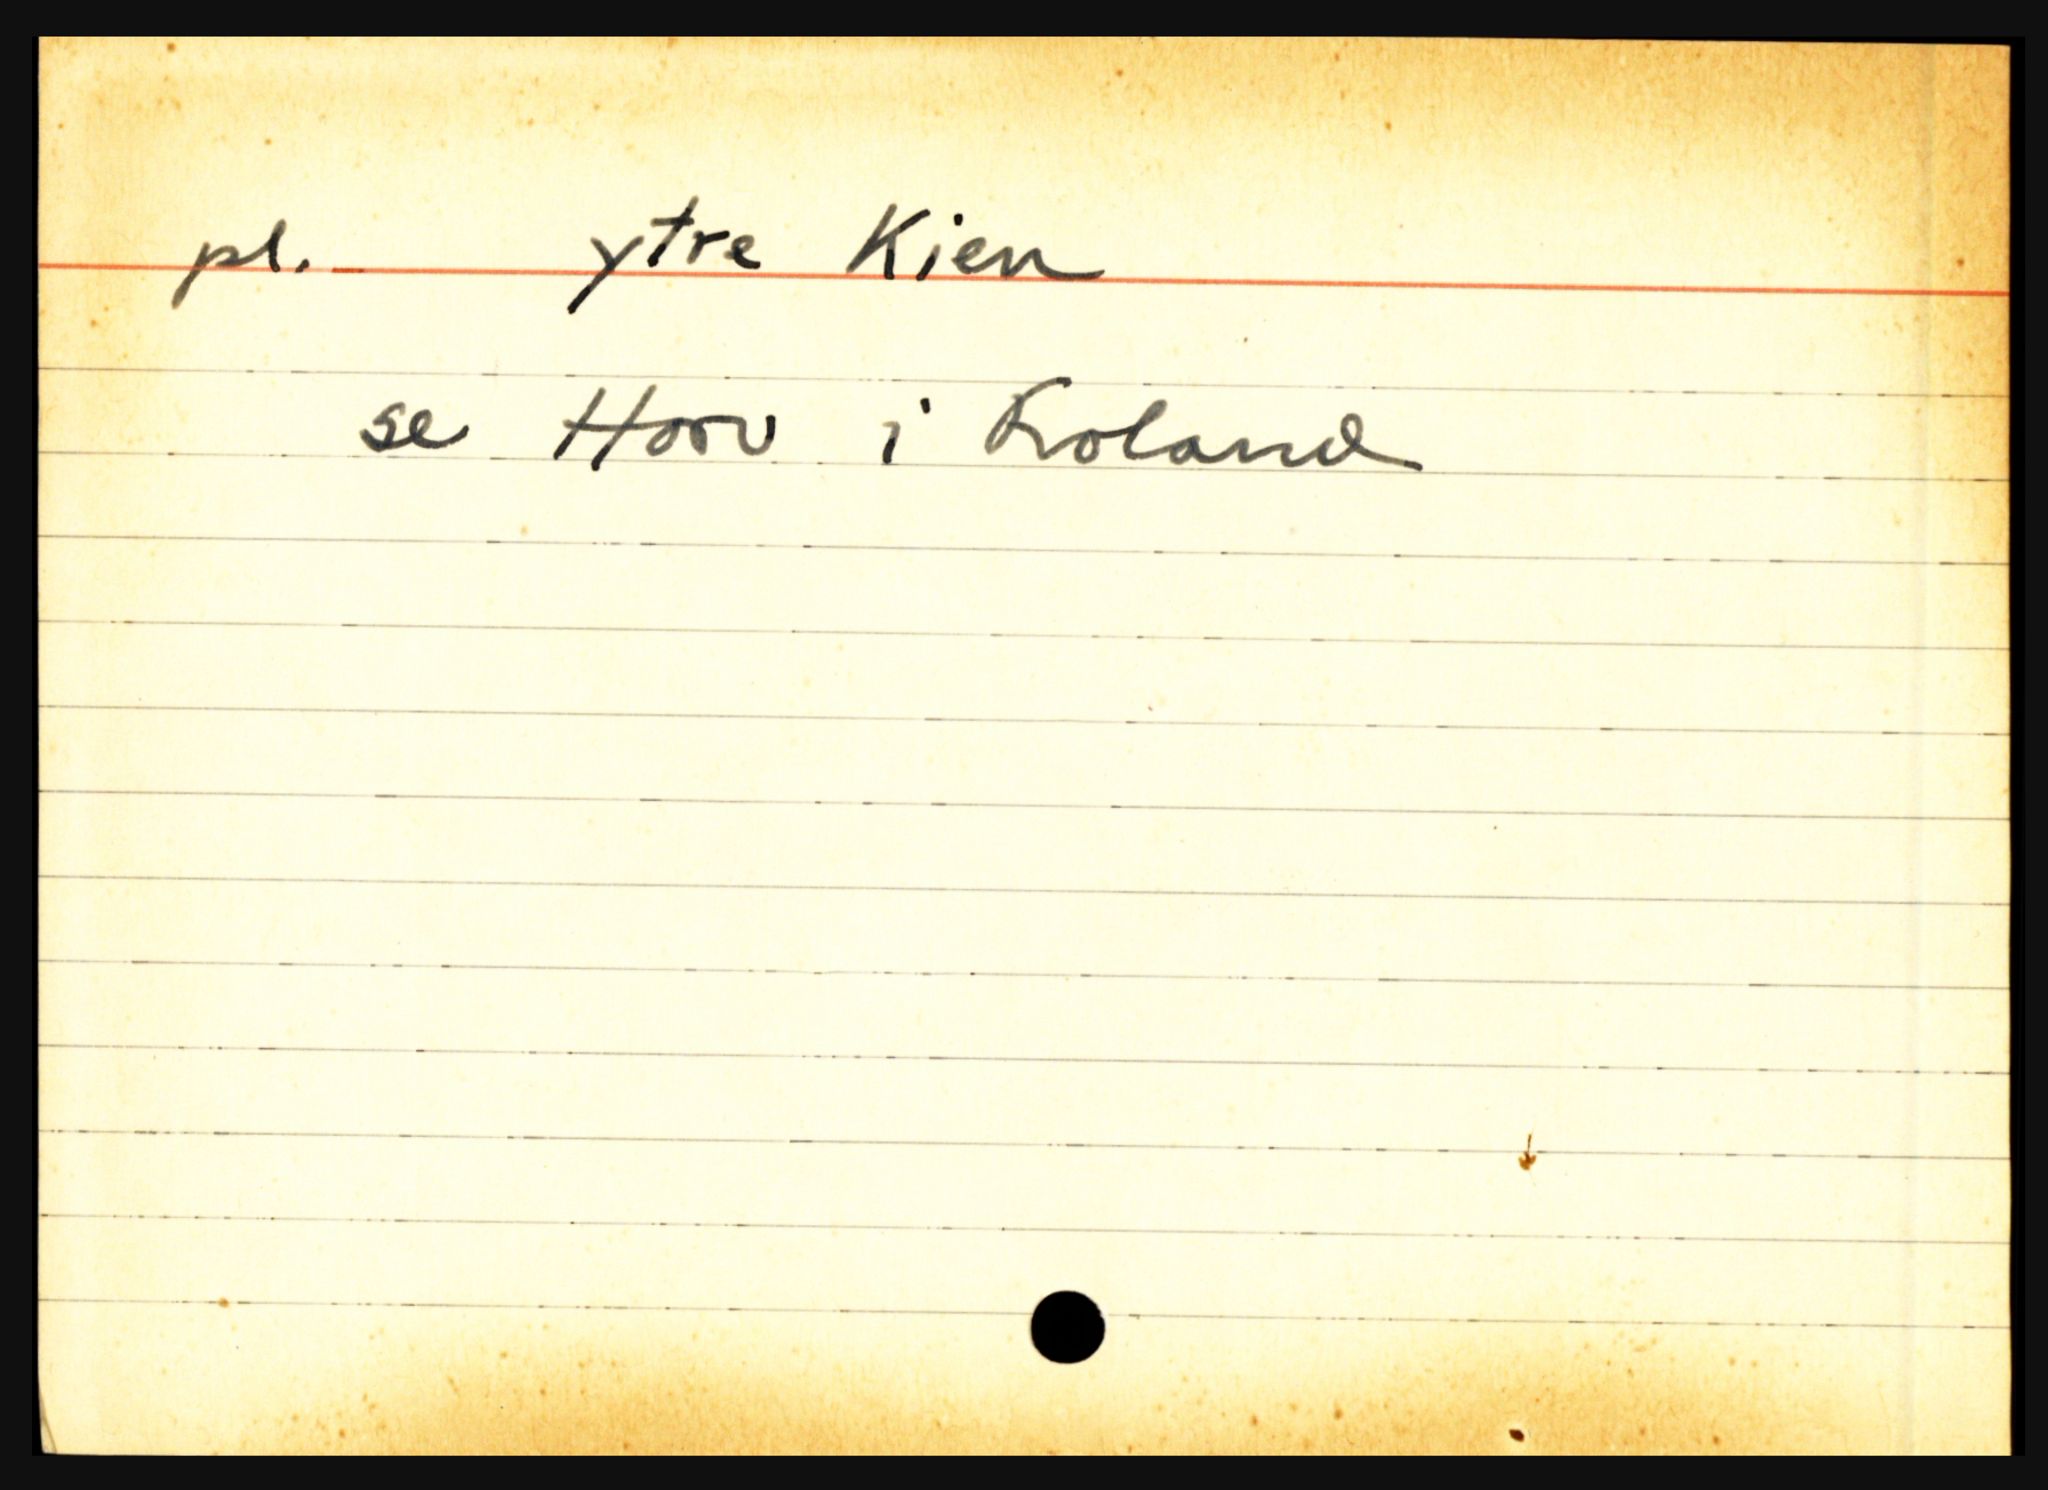 pl. ytre Kien
se Horv i Froland